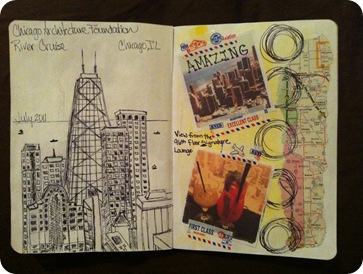 Chicago Architecture Foundation
River Cruise
Chicago, IL
July 2011
AMAZING
EXCELLENT CLASS
View from the
96th Floor Signature
Lounge
FIRST CLASS